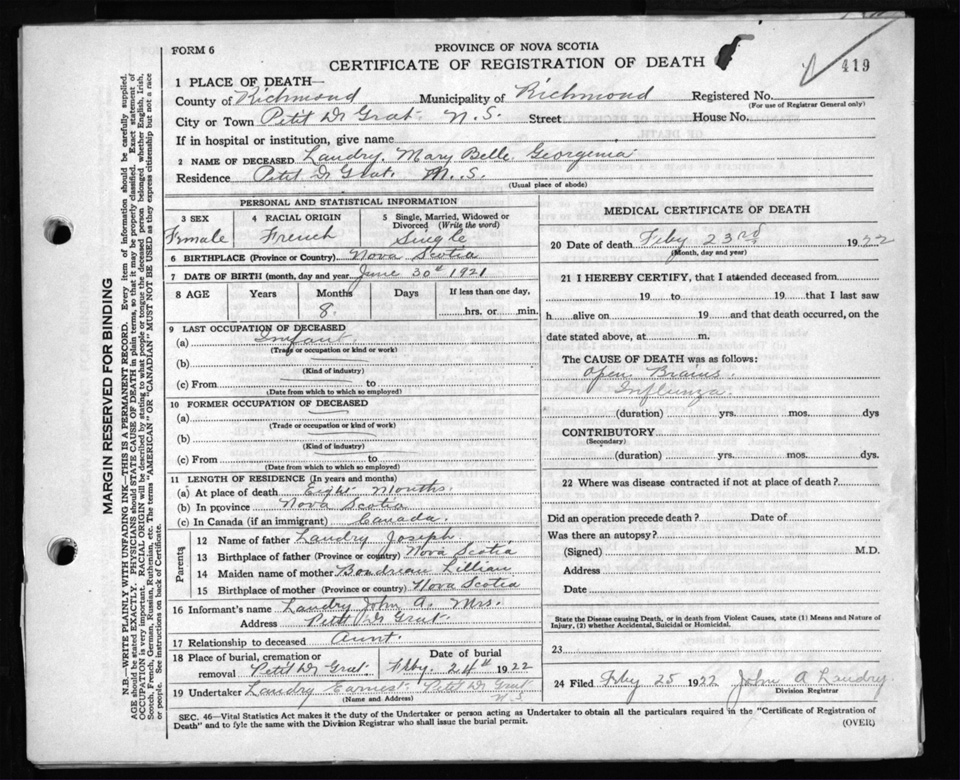 FORM 6
PROVINCE OF NOVA SCOTIA
CERTIFICATE OF REGISTRATION OF DEATH
419
1 PLACE OF DEATH—
County of Richmond Municipality of Richmond Registered No.
(For use of Registrar General only)
City or Town Petit De Grat N.S. Street House No.
If in hospital or institution, give name
2 NAME OF DECEASED Landry, Mary Belle Georgenia
Residence Petit De Grat. N.S.
(Usual place of abode)
PERSONAL AND STATISTICAL INFORMATION
3 SEX Frmale
4 RACIAL ORIGIN French
5 Single, Married, Widowed or Divorced (Write the word) Single
6 BIRTHPLACE (Province or Country) Nova Scotia
7 DATE OF BIRTH (month, day and year June 30th 1921
8 AGE Years Months Days If less than one day,
8. hrs. or min.
9 LAST OCCUPATION OF DECEASED
(a) Infant
(Trade or occupation or kind or work)
(b)
(Kind of industry)
(c) From to
(Date from which to which so employed)
10 FORMER OCCUPATION OF DECEASED
(a)
(Trade or occupation or kind of work)
(b)
(Kind of industry)
(c) From to
(Date from which to which so employed)
11 LENGTH OF RESIDENCE (In years and months)
(a) At place of death Eight Months.
(b) In province Nova Scotia
(c) In Canada (if an immigrant) Canada.
Parents
12 Name of father Landry Joseph
13 Birthplace of father (Province or country) Nova Scotia
14 Maiden name of mother Boudreau Lillian
15 Birthplace of mother (Province or country) Nova Scotia
16 Informant's name Landry John A. Mrs.
Address Petit De Grat.
17 Relationship to deceased Aunt.
18 Place of burial, cremation or removal Petit De Grat Date of burial Feby. 24th 1922
19 Undertaker Landry Earnest Petit De Grat N.S.
(Name and Address)
MEDICAL CERTIFICATE OF DEATH
20 Date of death Feby 23rd 1922
(Month, day and year)
21 I HEREBY CERTIFY, that I attended deceased from
19 to 19 that I last saw
h alive on 19 and that death occurred, on the
date stated above, at m.
The CAUSE OF DEATH was as follows:
Open Brains.
Influnza.
(duration) yrs. mos. dys
CONTRIBUTORY
(Secondary)
(duration) yrs. mos. dys.
22 Where was disease contracted if not at place of death?
Did an operation precede death? Date of
Was there an autopsy?
(Signed) M.D.
Address
Date
State the Disease causing Death, or in death from Violent Causes, state (1) Means and Nature of
Injury, (2) whether Accidental, Suicidal or Homicidal.
23
24 Filed Feby 25 1922 John A Landry
Division Registrar
SEC. 46—Vital Statistics Act makes it the duty of the Undertaker or person acting as Undertaker to obtain all the particulars required in the "Certificate of Registration of
Death" and to fyle the same with the Division Registrar who shall issue the burial permit.
(OVER)
MARGIN RESERVED FOR BINDING
N.B.—WRITE PLAINLY WITH UNFADING INK—THIS IS A PERMANENT RECORD. Every item of information should be carefully supplied.
AGE should be stated EXACTLY. PHYSICIANS should STATE CAUSE OF DEATH in plain terms, so that it may be properly classified. Exact statement of
OCCUPATION is very important. RACIAL ORIGIN will be described by stating to what people or tongue the deceased person belonged whether English, Irish,
Scotch, French, German, Russian, Ruthenian, etc. The terms "AMERICAN" or "CANADIAN" MUST NOT BE USED as they express citizenship but not a race
or people. See instructions on back of Certificate.